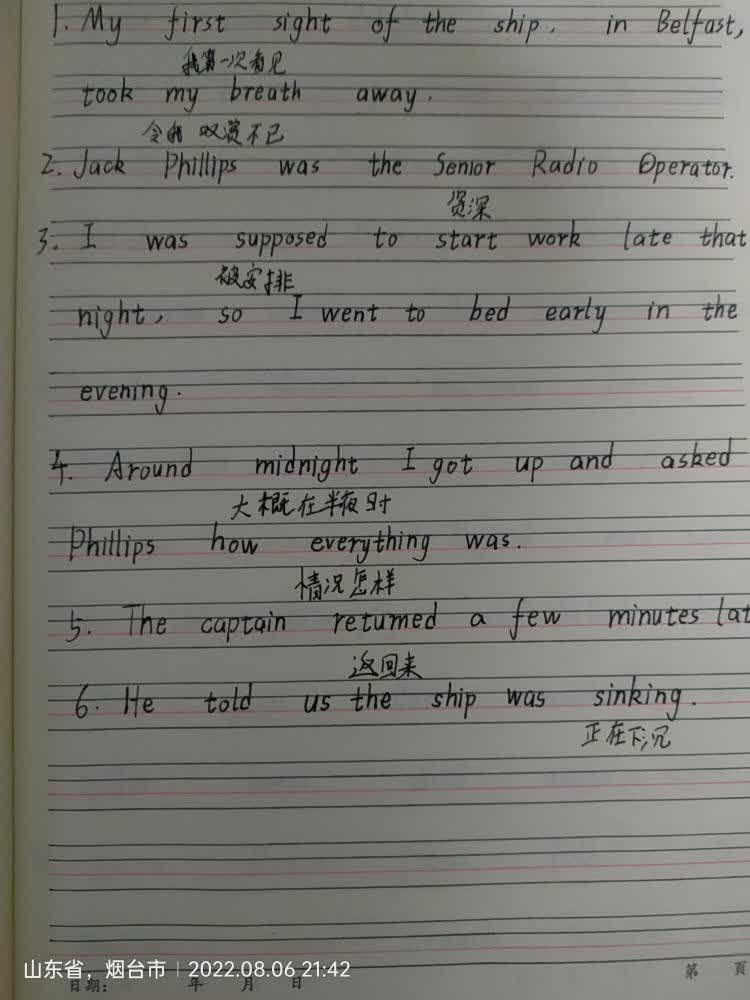 1. My first sight of the ship, in Belfast,
我第一次看见
took my breath away.
令我叹赏不已
2. Jack Phillips was the Senior Radio Operator.
资深
3. I was supposed to start work late that
被安排
night, so I went to bed early in the
evening.
4. Around midnight I got up and asked
大概在半夜时
Phillips how everything was.
情况怎样
5. The captain returned a few minutes lat
返回来
6. He told us the ship was sinking.
正在下沉
山东省，烟台市 | 2022.08.06 21:42
日期: 年 月 日
第 頁